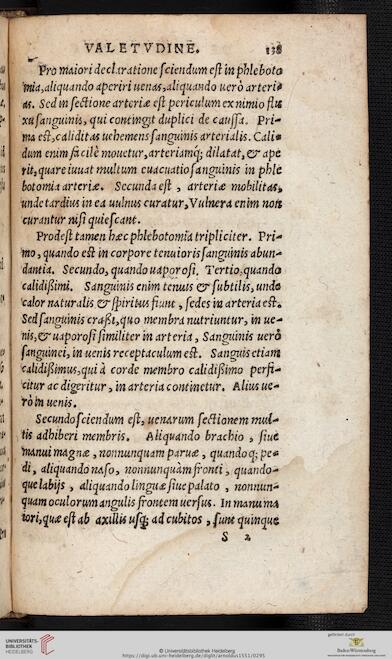 VALETVDINE. 138
Pro maiori declaratione sciendum est in phleboto
mia, aliquando aperiri uenas, aliquando uerò arteri
as. Sed in sectione arteriæ est periculum ex nimio flu
xu sanguinis, qui contingit duplici de caussa. Pri-
ma est, caliditas uehemens sanguinis arterialis. Cali-
dum enim facilè mouetur, arteriamq; dilatat, & ape
rit, quare iuuat multum euacuatio sanguinis in phle
botomia arteriæ. Secunda est, arteriæ mobilitas,
unde tardius in ea uulnus curatur, Vulnera enim non
curantur nisi quiescant.
Prodest tamen hæc phlebotomia tripliciter. Pri-
mo, quando est in corpore tenuioris sanguinis abun-
dantia. Secundo, quando uaporosi. Tertio, quando
calidißimi. Sanguinis enim tenuis & subtilis, unde
calor naturalis & spiritus fiunt, sedes in arteria est.
Sed sanguinis craßi, quo membra nutriuntur, in ue-
nis, & uaporosi similiter in arteria, Sanguinis uerò
sanguinei, in uenis receptaculum est. Sanguis etiam
calidißimus, qui à corde membro calidißimo perfi-
citur ac digeritur, in arteria continetur. Alius ue-
rò in uenis.
Secundo sciendum est, uenarum sectionem mul-
tis adhiberi membris. Aliquando brachio, siue
manui magnæ, nonnunquam paruæ, quandoq; pe-
di, aliquando naso, nonnunquàm fronti, quando-
que labijs, aliquando linguæ siue palato, nonnun-
quam oculorum angulis frontem uersus. In manu ma
iori, quæ est ab axillis usq; ad cubitos, sunt quinque
S 2
UNIVERSITÄTS-
BIBLIOTHEK
HEIDELBERG
© Universitätsbibliothek Heidelberg
https://digi.ub.uni-heidelberg.de/diglit/arnoldus1551/0295
gefördert durch
Baden-Württemberg